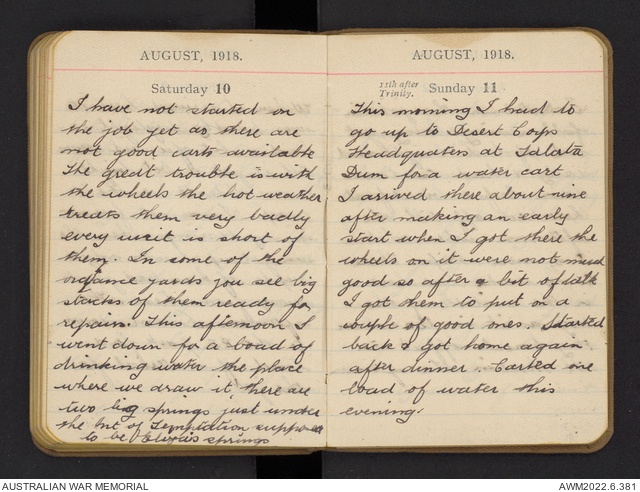 AUGUST, 1918.
Saturday 10
I have not started on
the job yet as there are
not good carts available
The great trouble is with
the wheels the hot weather
treats them very badly
every unit is short of
them. In some of the
ordance yards you see big
stacks of them ready for
repairs. This afternoon I
went down for a load of
drinking water the place
where we draw it, there are
two big springs just under
the Mt of Temptation suppose
to be Elija's springs
AUGUST, 1918.
11th after
Trinity. Sunday 11
This morning I had to
go up to Desert Corps
Headquaters at Talata
Dum for a water cart
I arrived there about nine
after making an early
start when I got there the
wheels on it were not much
good so after a bit of talk
I got them to put on a
couple of good ones. Started
back & got home again
after dinner. Carted one
load of water this
evening.
AUSTRALIAN WAR MEMORIAL
AWM2022.6.381